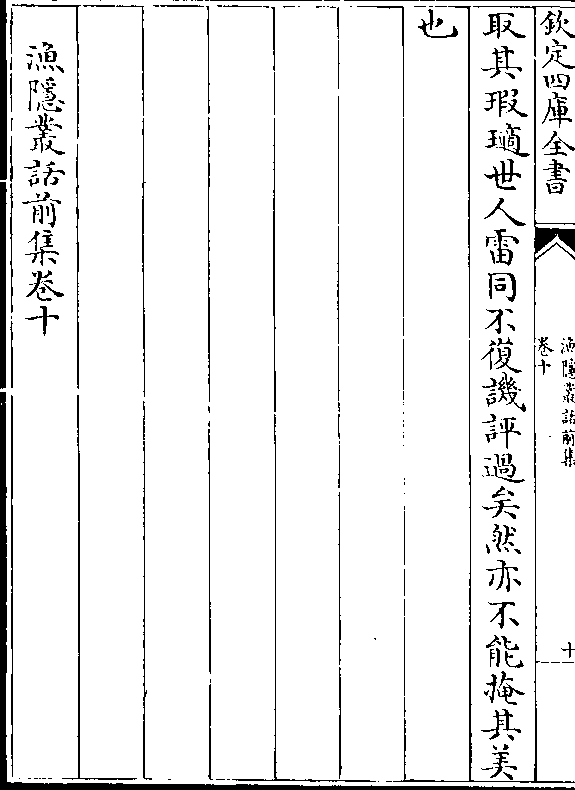 欽定四庫全書
漁隱叢話前集
卷十
十
取其瑕璊世人雷同不復譏評過矣然亦不能掩其美
也
漁隱叢話前集卷十